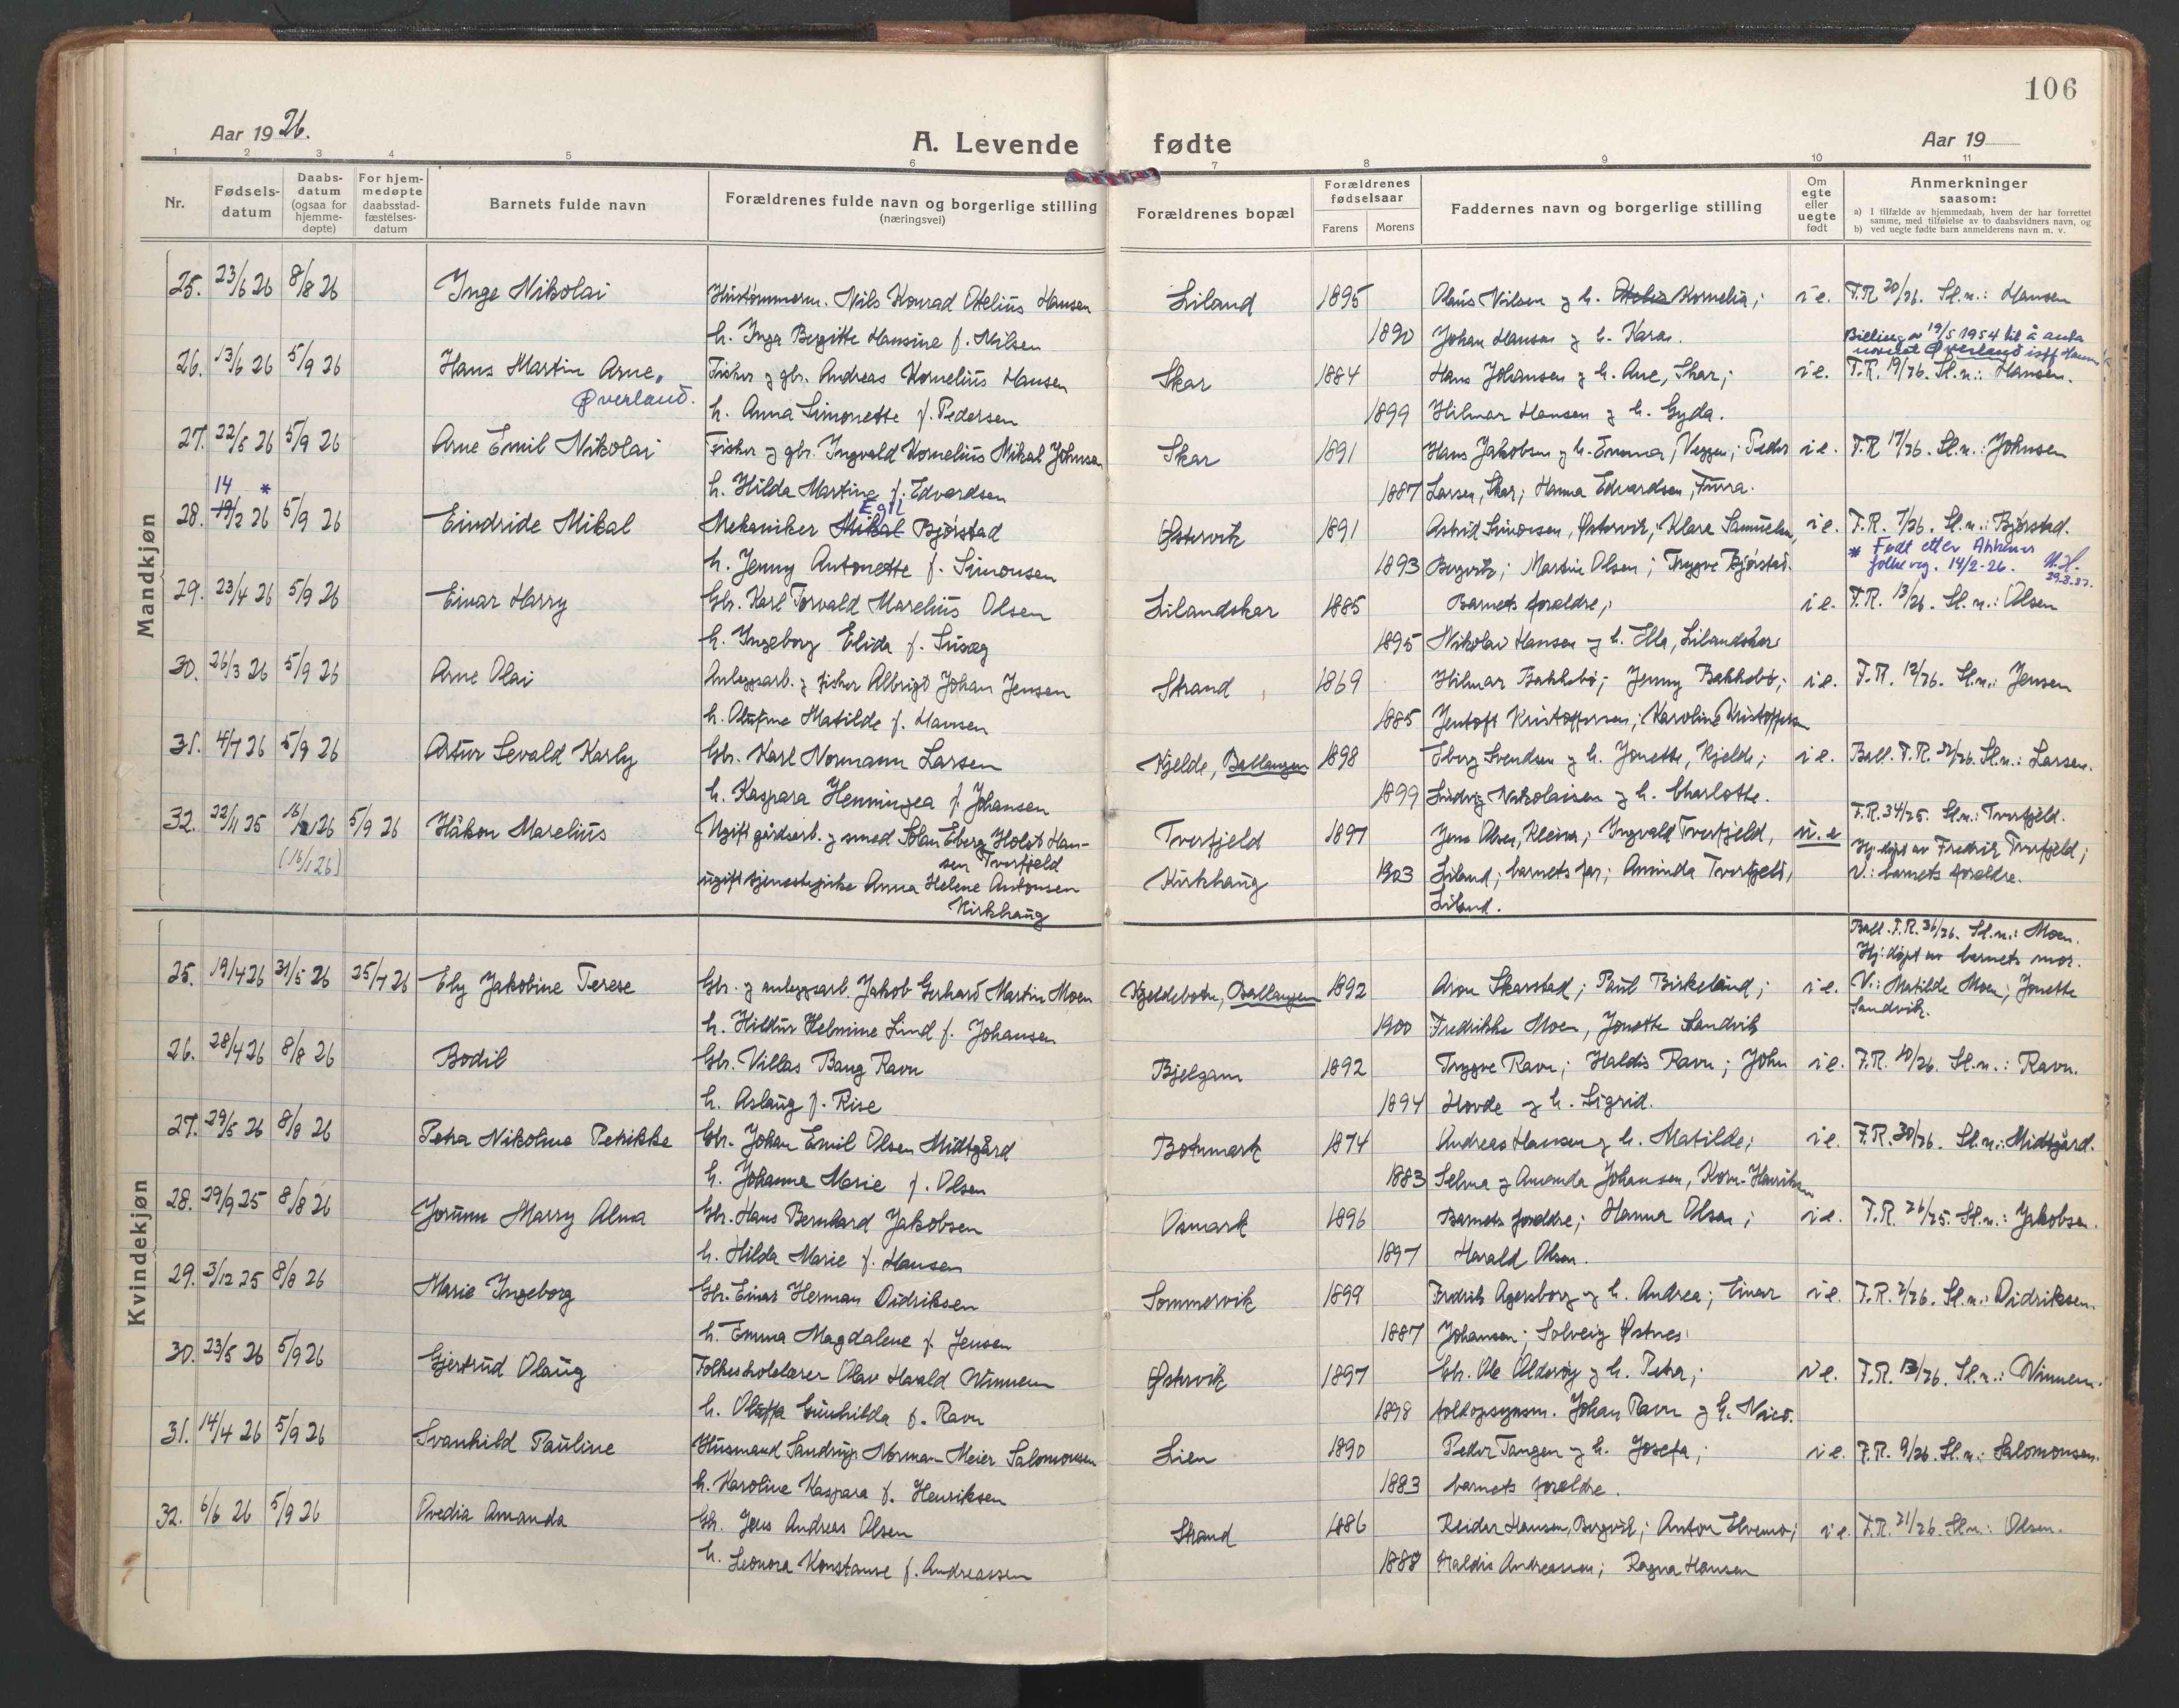 106
Aar 1926.
A. Levende fødte
Aar 19
1 2 3 4 5 6 7 8 9 10 11
Nr.
Fødsels-
datum
Daabs-
datum
(ogsaa for
hjemme-
døpte)
For hjem-
medøpte
daabsstad-
fæstelses-
datum
Barnets fulde navn
Forældrenes fulde navn og borgerlige stilling
(næringsvei)
Forældrenes bopæl
Forældrenes
fødselsaar
Farens
Morens
Faddernes navn og borgerlige stilling
Om
egte
eller
uegte
født
Anmerkninger
saasom:
a) I tilfælde av hjemmedaab, hvem der har forrettet
samme, med tilføielse av to daabsvidners navn, og
b) ved uegte fødte barn anmelderens navn m. v.
Mandkjøn
25. 23/6 26 8/8 26 Inge Nikolai Hustømmerm. Nils Konrad Otelius Hansen Liland 1895 Olaus Nilsen og h. Kornelia; i e. F.R. 20/26. Sl.n.: Hansen
h. Inga Bergitte Hansine f. Nilsen 1890 Johan Hansen og h. Kara.
19/5 1954 til å anta
navnet Øverland
26. 13/6 26 5/9 26 Hans Martin Arne, Fisker og gbr. Andreas Kornelius Hansen Skar 1884 Hans Johansen og h. Ane, Skar; i e. F.R. 19/26. Sl.n.: Hansen.
Øverland.
h. Anna Simonette f. Pedersen 1899 Hilmar Hansen og h. Gyda.
27. 22/5 26 5/9 26 Arne Emil Nikolai Fisker og gbr. Ingvald Kornelius Mikal Johnsen Skar 1891 Hans Jakobsen og h. Emma, Veggen; Peder i e. F.R. 17/26. Sl.n.: Johnsen
h. Hilda Martine f. Edvardsen 1887 Larsen, Skar; Hanna Edvardsen,
14 * Egil
28. 19/2 26 5/9 26 Eindride Mikal Mekaniker Mikal Bjørstad Østervik 1891 Astrid Simonsen, Østervik; Klara Samuelsen, i e. F.R. 7/26. Sl.n.: Bjørstad.
h. Jenny Antonette f. Simonsen 1893 Bergvik; Martin Olsen; Trygve Bjørstad.
* Født etter Ankenes
folkereg. 14/2-26.
29. 23/4 26 5/9 26 Einar Harry Gbr. Karl Torvald Marelius Olsen Lilandskar 1885 Barnets forældre; i e. F.R. 13/26. Sl.n.: Olsen
h. Ingeborg Elida f. 1895 Nikolai Hansen og h. Ella, Lilandskar
30. 26/3 26 5/9 26 Arne Olai Anleggsarb. og fisker Albrigt Johan Jensen Strand 1869 Hilmar Bakkebø; Jenny Bakkebø; i e. F.R. 12/26. Sl.n.: Jensen
h. Olufine Matilde f. Hansen 1885 Jentoft Kristoffersen; Karoline Kristoffersen
31. 4/7 26 5/9 26 Artur Sevald Karly Gbr. Karl Normann Larsen Kjelde, Ballangen 1898 Eberg Svendsen og h. Jonette, Kjelde; i e. Ball. F.R. Sl.n.: Larsen.
h. Kaspara Henningea f. Johansen 1899 Ludvig Nikolaisen og h. Charlotte.
F.R. 34/25. Sl.n.: Tverfjeld.
32. 22/11 25 5/9 26 Håkon Marelius Ugift gårdsarb. og smed Johan Eberg Holst Han- Tverfjeld 1897 Jens Olsen, Kleiva; Ingvald Tverfjeld, u. e Hj.døpt av Fredrik Tverfjeld;
(16/1 26) sen Tverfjeld
ugift tjenestepike Anna Helene Antonsen Kirkhaug 1903 Liland; barnets far; Aminda Tverfjeld, V.: barnets forældre.
Kirkhaug Liland.
Kvindekjøn
Ball. F.R. 36/26. Sl.n.: Moen.
Hj.døpt av barnets mor.
25. 19/4 26 31/5 26 25/7 26 Ely Jakobine Terese Gbr. og anleggsarb. Jakob Gerhard Martin Moen Kjeldebotn, Ballangen 1892 Aron Skarstad; Paul Birkeland; i e. V.: Matilde Moen; Jonette
Sandvik.
h. Hildur Helmine Lind f. Johansen 1900 Fredrikke Moen, Jonette Sandvik
26. 28/4 26 8/8 26 Bodil Gbr. Villas Bang Ravn Bjelgam 1892 Trygve Ravn; Haldis Ravn; John i e. F.R. 10/26. Sl.n.: Ravn.
h. Aslaug f. Rise 1894 Hovde og h. Sigrid.
27. 29/5 26 8/8 26 Petra Nikoline Petrikke Gbr. Johan Emil Olsen Midtgård Botnmark 1874 Andreas Hansen og h. Matilde; i e. F.R. 30/26. Sl.n.: Midtgård.
h. Johanna Marie f. Olsen 1883 Selma og Amanda Johansen, Korn. Henriksen
28. 29/9 25 8/8 26 Jorunn Marry Alma Gbr. Hans Bernhard Jakobsen Osmark 1896 Barnets forældre; Hanna Olsen; i e. F.R. 26/25. Sl.n.: Jakobsen.
h. Hilda Marie f. Hansen 1897 Harald Olsen.
29. 3/12 25 8/8 26 Marie Ingeborg Gbr. Einar Herman Didriksen Sommervik 1899 Fredrik Agersborg og h. Andrea; Einar i e. F.R. 2/26. Sl.n.: Didriksen.
h. Emma Magdalene f. Jensen 1887 Johansen; Solveig Østnes.
30. 23/5 26 5/9 26 Gjertrud Olaug Folkeskolelærer Olav Harald Winnem Østervik 1897 Gbr. Ole Aldervig og h. Petra; i e. F.R. 13/26. Sl.n.: Winnem.
h. Oluffa Gunhilda f. Ravn 1898 Johan Ravn og h.
31. 14/4 26 5/9 26 Svanhild Pauline Husmand Sandrup Norman Meier Salomonsen Lien 1890 Peder Tangen og h. Josefa; i e. F.R. 9/26. Sl.n.: Salomonsen.
h. Karoline Kaspara f. Henriksen 1883 barnets forældre.
32. 6/6 26 5/9 26 Ovedia Amanda Gbr. Jens Andreas Olsen Strand 1886 Reidar Hansen, Bergvik; Anton Elvemo; i e. F.R. 21/26. Sl.n.: Olsen.
h. Leonora Konstanse f. Andreassen 1888 Haldis Andreassen; Ragna Hansen